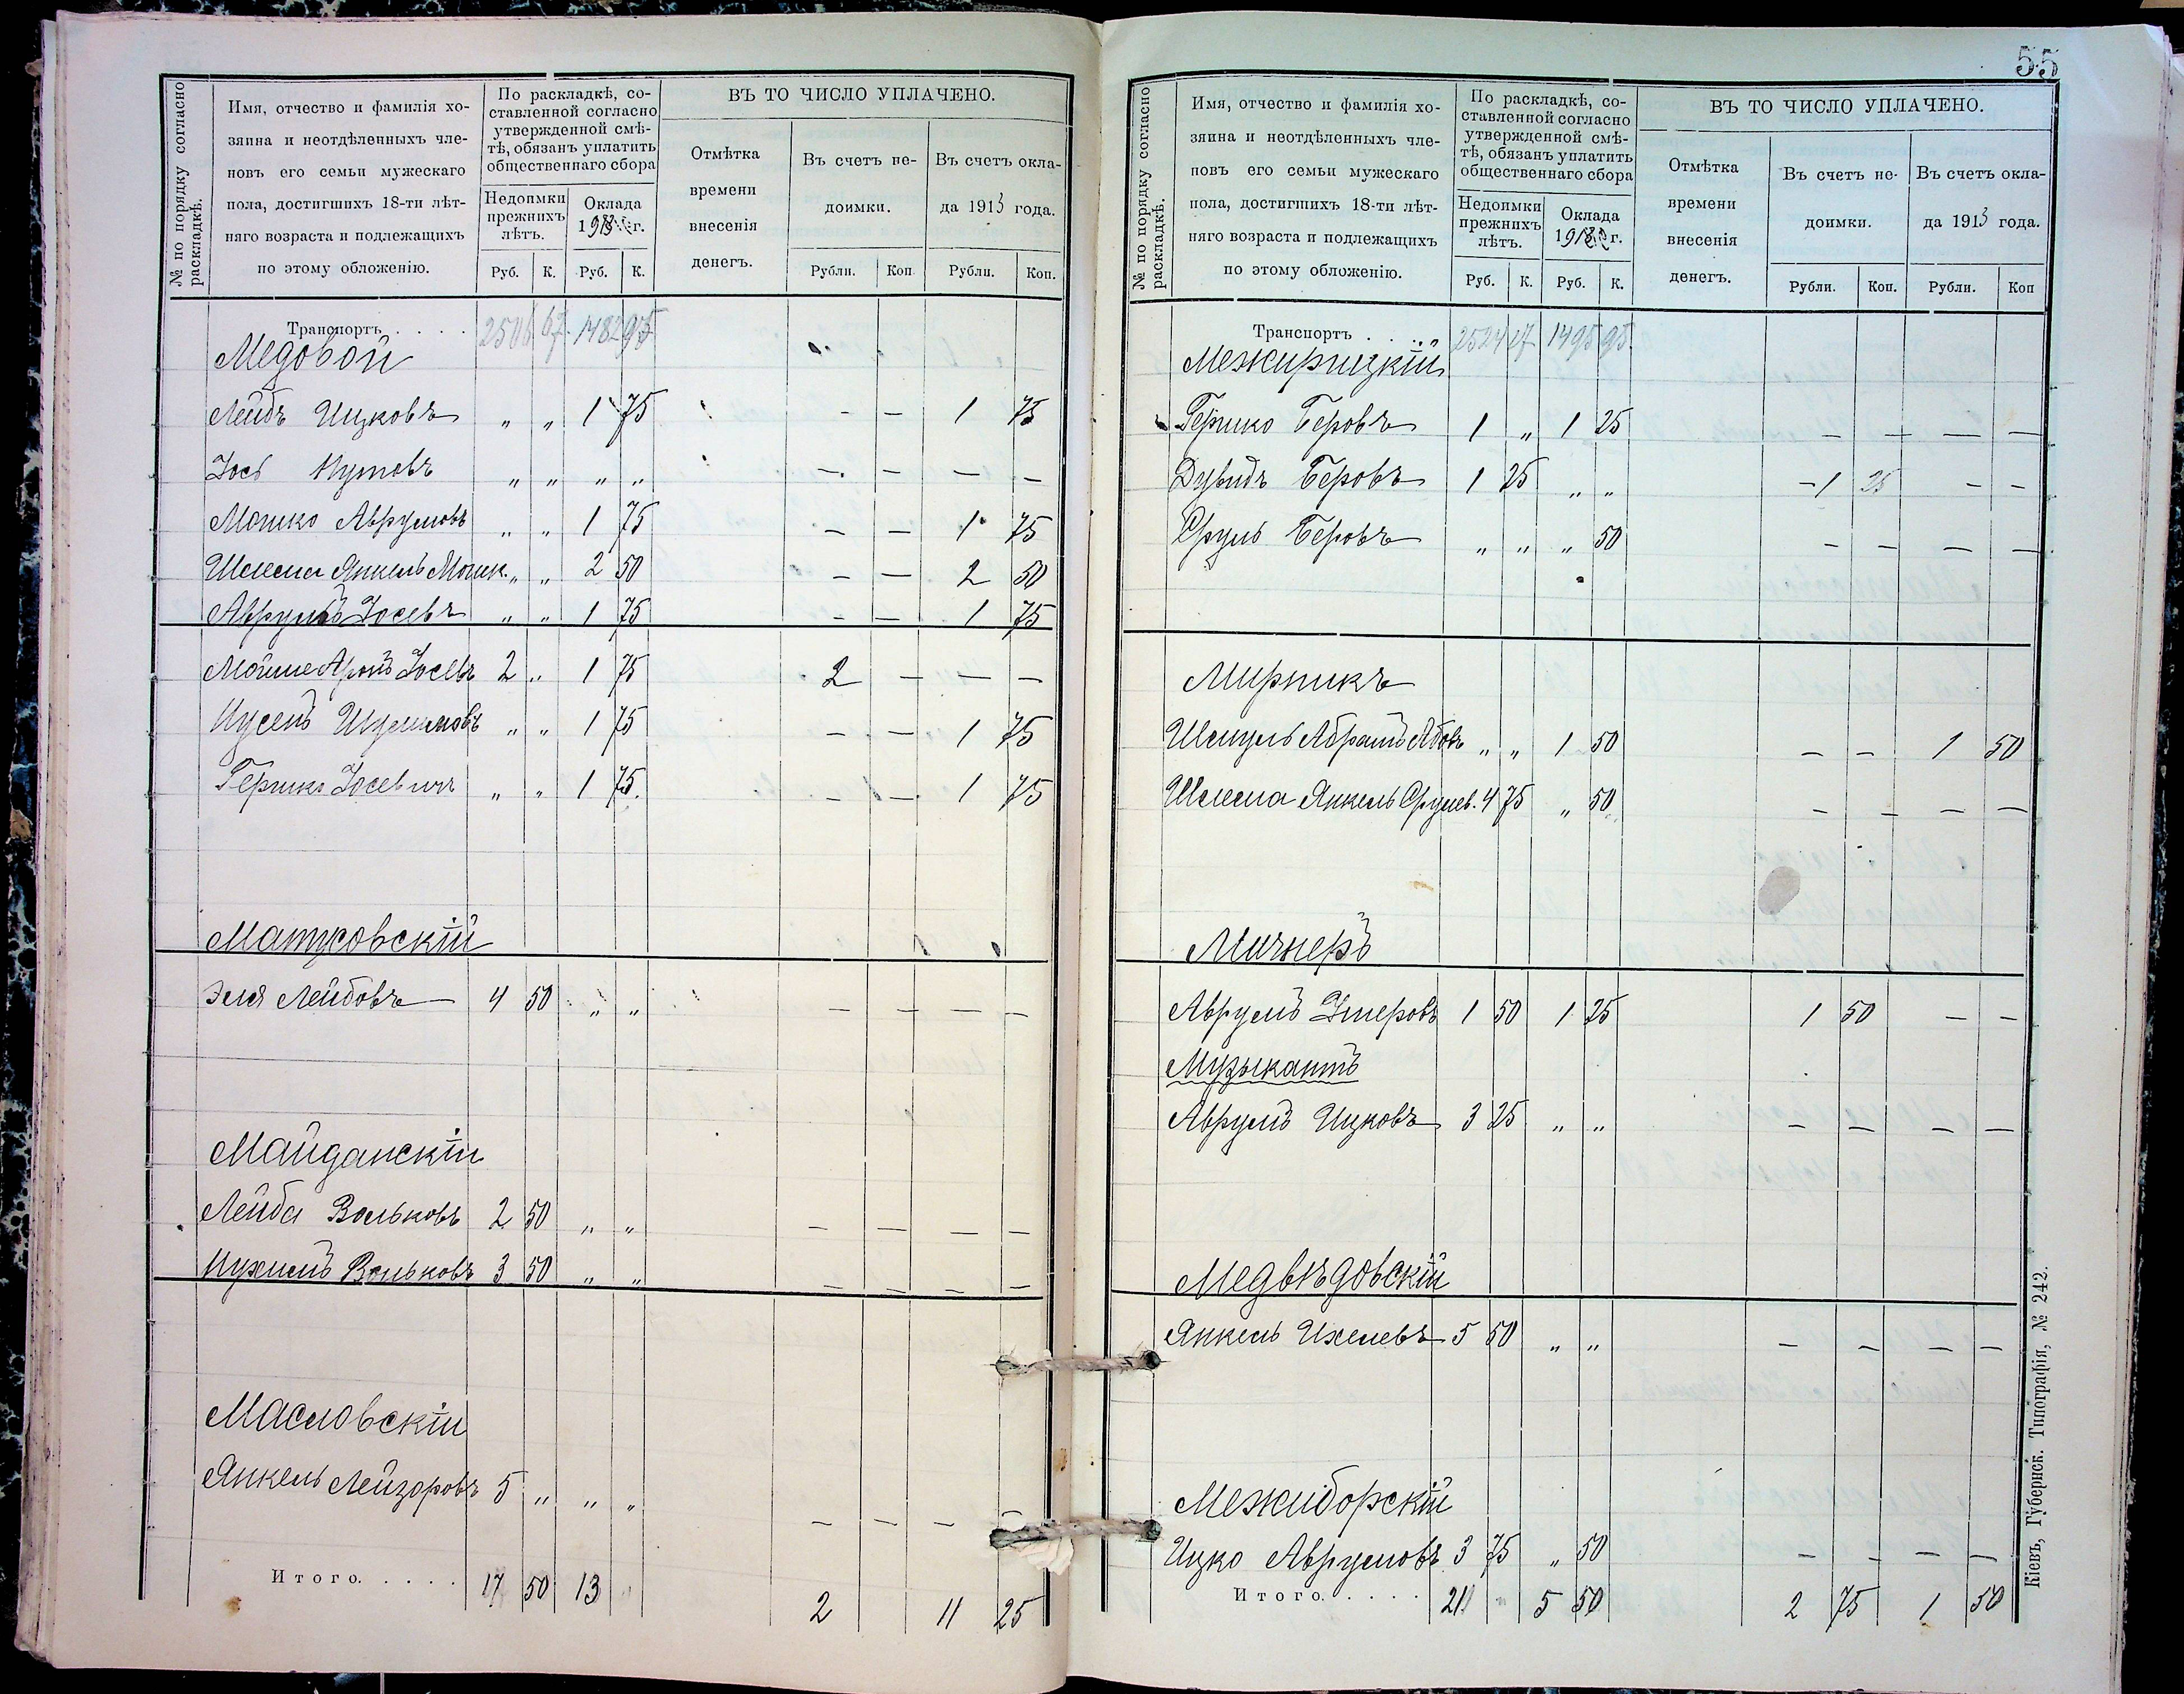 № по порядку согласно раскладкѣ.
Имя, отчество и фамилія хо-
зяина и неотдѣленныхъ чле-
новъ его семьи мужескаго
пола, достигшихъ 18-ти лѣт-
няго возраста и подлежащихъ
по этому обложенію.
По раскладкѣ, со-
ставленной согласно
утвержденной смѣ-
тѣ, обязанъ уплатить
общественнаго сбора
Недоимки
прежнихъ
лѣтъ.
Оклада
1913 г.
Руб. К. Руб. К.
ВЪ ТО ЧИСЛО УПЛАЧЕНО.
Отмѣтка
времени
внесенія
денегъ.
Въ счетъ не-
доимки.
Въ счетъ окла-
да 1913 года.
Рубли. Коп Рубли. Коп.
Транспортъ . . . . 2506 67 1482 95
Медовой
Лейбъ Ицковъ „ „ 1 75 - - 1 75
Іось Нутовъ „ „ „ „ - - - -
Мошко Аврумовъ „ „ 1 75 - - 1 75
Шлема Янкель Мошк. „ „ 2 50 - - 2 50
Аврумъ Іосевъ „ „ 1 75 - - 1 75
Мойше Аронъ Іосевъ 2 „ 1 75 2 - - -
Нусенъ Шулимовъ „ „ 1 75 - - 1 75
Гершко Іосевичъ „ „ 1 75 - - 1 75
Матусовскій
Эля Лейбовъ 4 50 „ „ - - - -
Майданскій
Лейба Вольковъ 2 50 „ „ - - - -
Нухимъ Вольковъ 3 50 „ „ - - - -
Масловскій
Янкель Лейзоровъ 5 „ „ „ - - - -
Итого. . . . . 17 50 13 „ 2 11 25
55
№ по порядку согласно раскладкѣ.
Имя, отчество и фамилія хо-
зяина и неотдѣленныхъ чле-
новъ его семьи мужескаго
пола, достигшихъ 18-ти лѣт-
няго возраста и подлежащихъ
по этому обложенію.
По раскладкѣ, со-
ставленной согласно
утвержденной смѣ-
тѣ, обязанъ уплатить
общественнаго сбора
Недоимки
прежнихъ
лѣтъ.
Оклада
1913 г.
Руб. К. Руб. К.
ВЪ ТО ЧИСЛО УПЛАЧЕНО.
Отмѣтка
времени
внесенія
денегъ.
Въ счетъ не-
доимки.
Въ счетъ окла-
да 1913 года.
Рубли. Коп. Рубли. Коп
Транспортъ . . . . 2524 17 1495 95
Межирицкій
Гершко Беровъ 1 „ 1 25 - - - -
Дувидъ Беровъ 1 25 „ „ - 1 25 - -
Сруль Беровъ „ „ „ 50 - - - -
Мирникъ
Шмуль Абрамъ Абовъ „ „ 1 50 - - 1 50
Шлема Янкель Срулев. 4 75 „ 50 - - - -
Мичнеръ
Аврумъ Умеровъ 1 50 1 25 1 50 - -
Музыкантъ
Аврумъ Ицковъ 3 25 „ „ - - - -
Медвѣдовскій
Янкель Ихелевъ 5 50 „ „ - - - -
Межиборскій
Ицко Аврумовъ 3 75 „ 50 - - - -
Итого. . . . . 21 „ 5 50 2 75 1 50
Кіевъ, Губернск. Типографія, № 242.